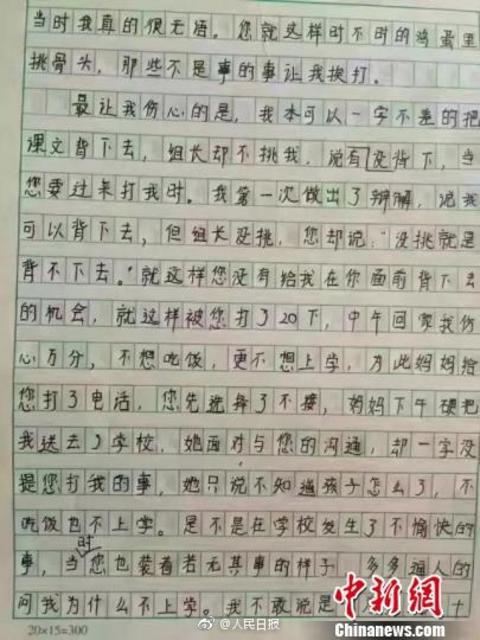 当时我真的很无语。您就这样时不时的鸡蛋里
挑骨头，那些不是事的事让我挨打。
最让我伤心的是，我本可以一字不差的把
课文背下去，组长却不挑我，说有没背下，当
您要过来打我时。我第一次做出了辩解，说我
可以背下去，但组长没挑，您却说："没挑就是
背不下去。"就这样您没有给我在你面前背下去
的机会，就这样被您打了20下，中午回家我伤
心万分，不想吃饭，更不想上学，为此妈妈给
您打了电话，您先选择了不接，妈妈下午硬把
我送去了学校，她面对与您的沟通，却一字没
提您打我的事，她只说不知道孩子怎么了，不
吃饭也不上学。是不是在学校发生了不愉快的
事，当时您也装着若无其事的样子，多多逼人的
问我为什么不上学。我不敢说是
20×15=300
@人民日报
中新网
Chinanews.com